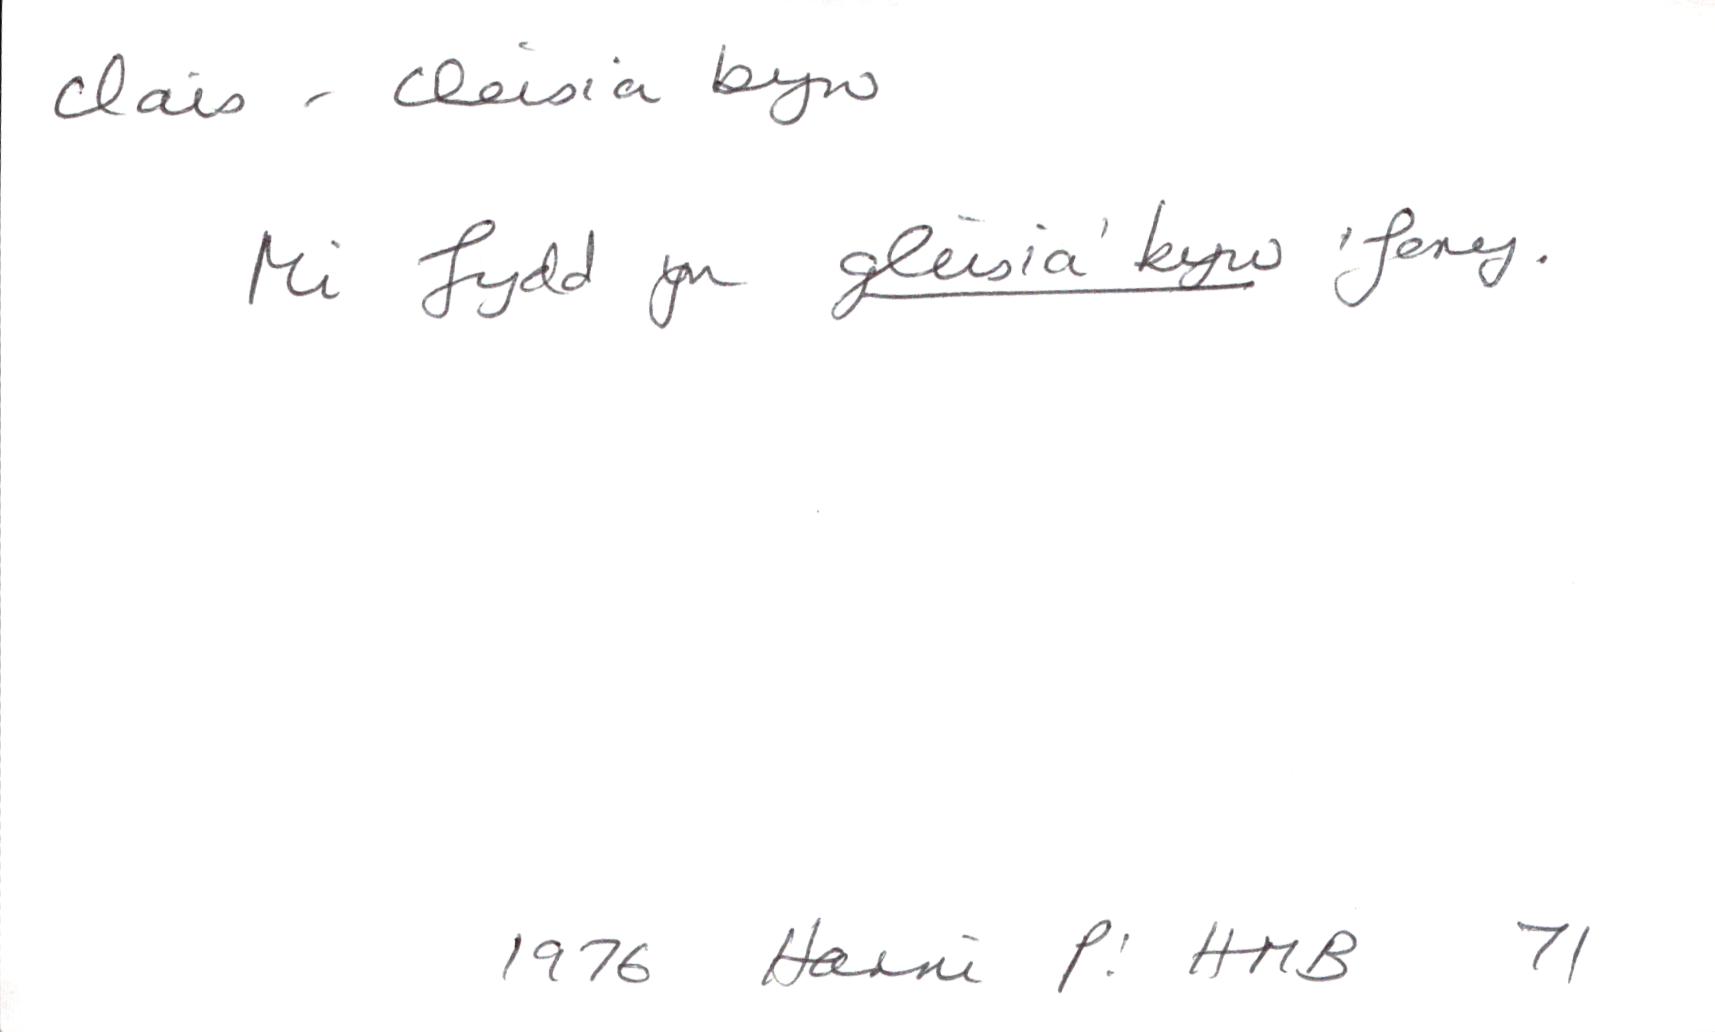 clais - cleisia byw
Mi fydd yn gleisia' byw 'fory.
1976 Harri P: HMB 71